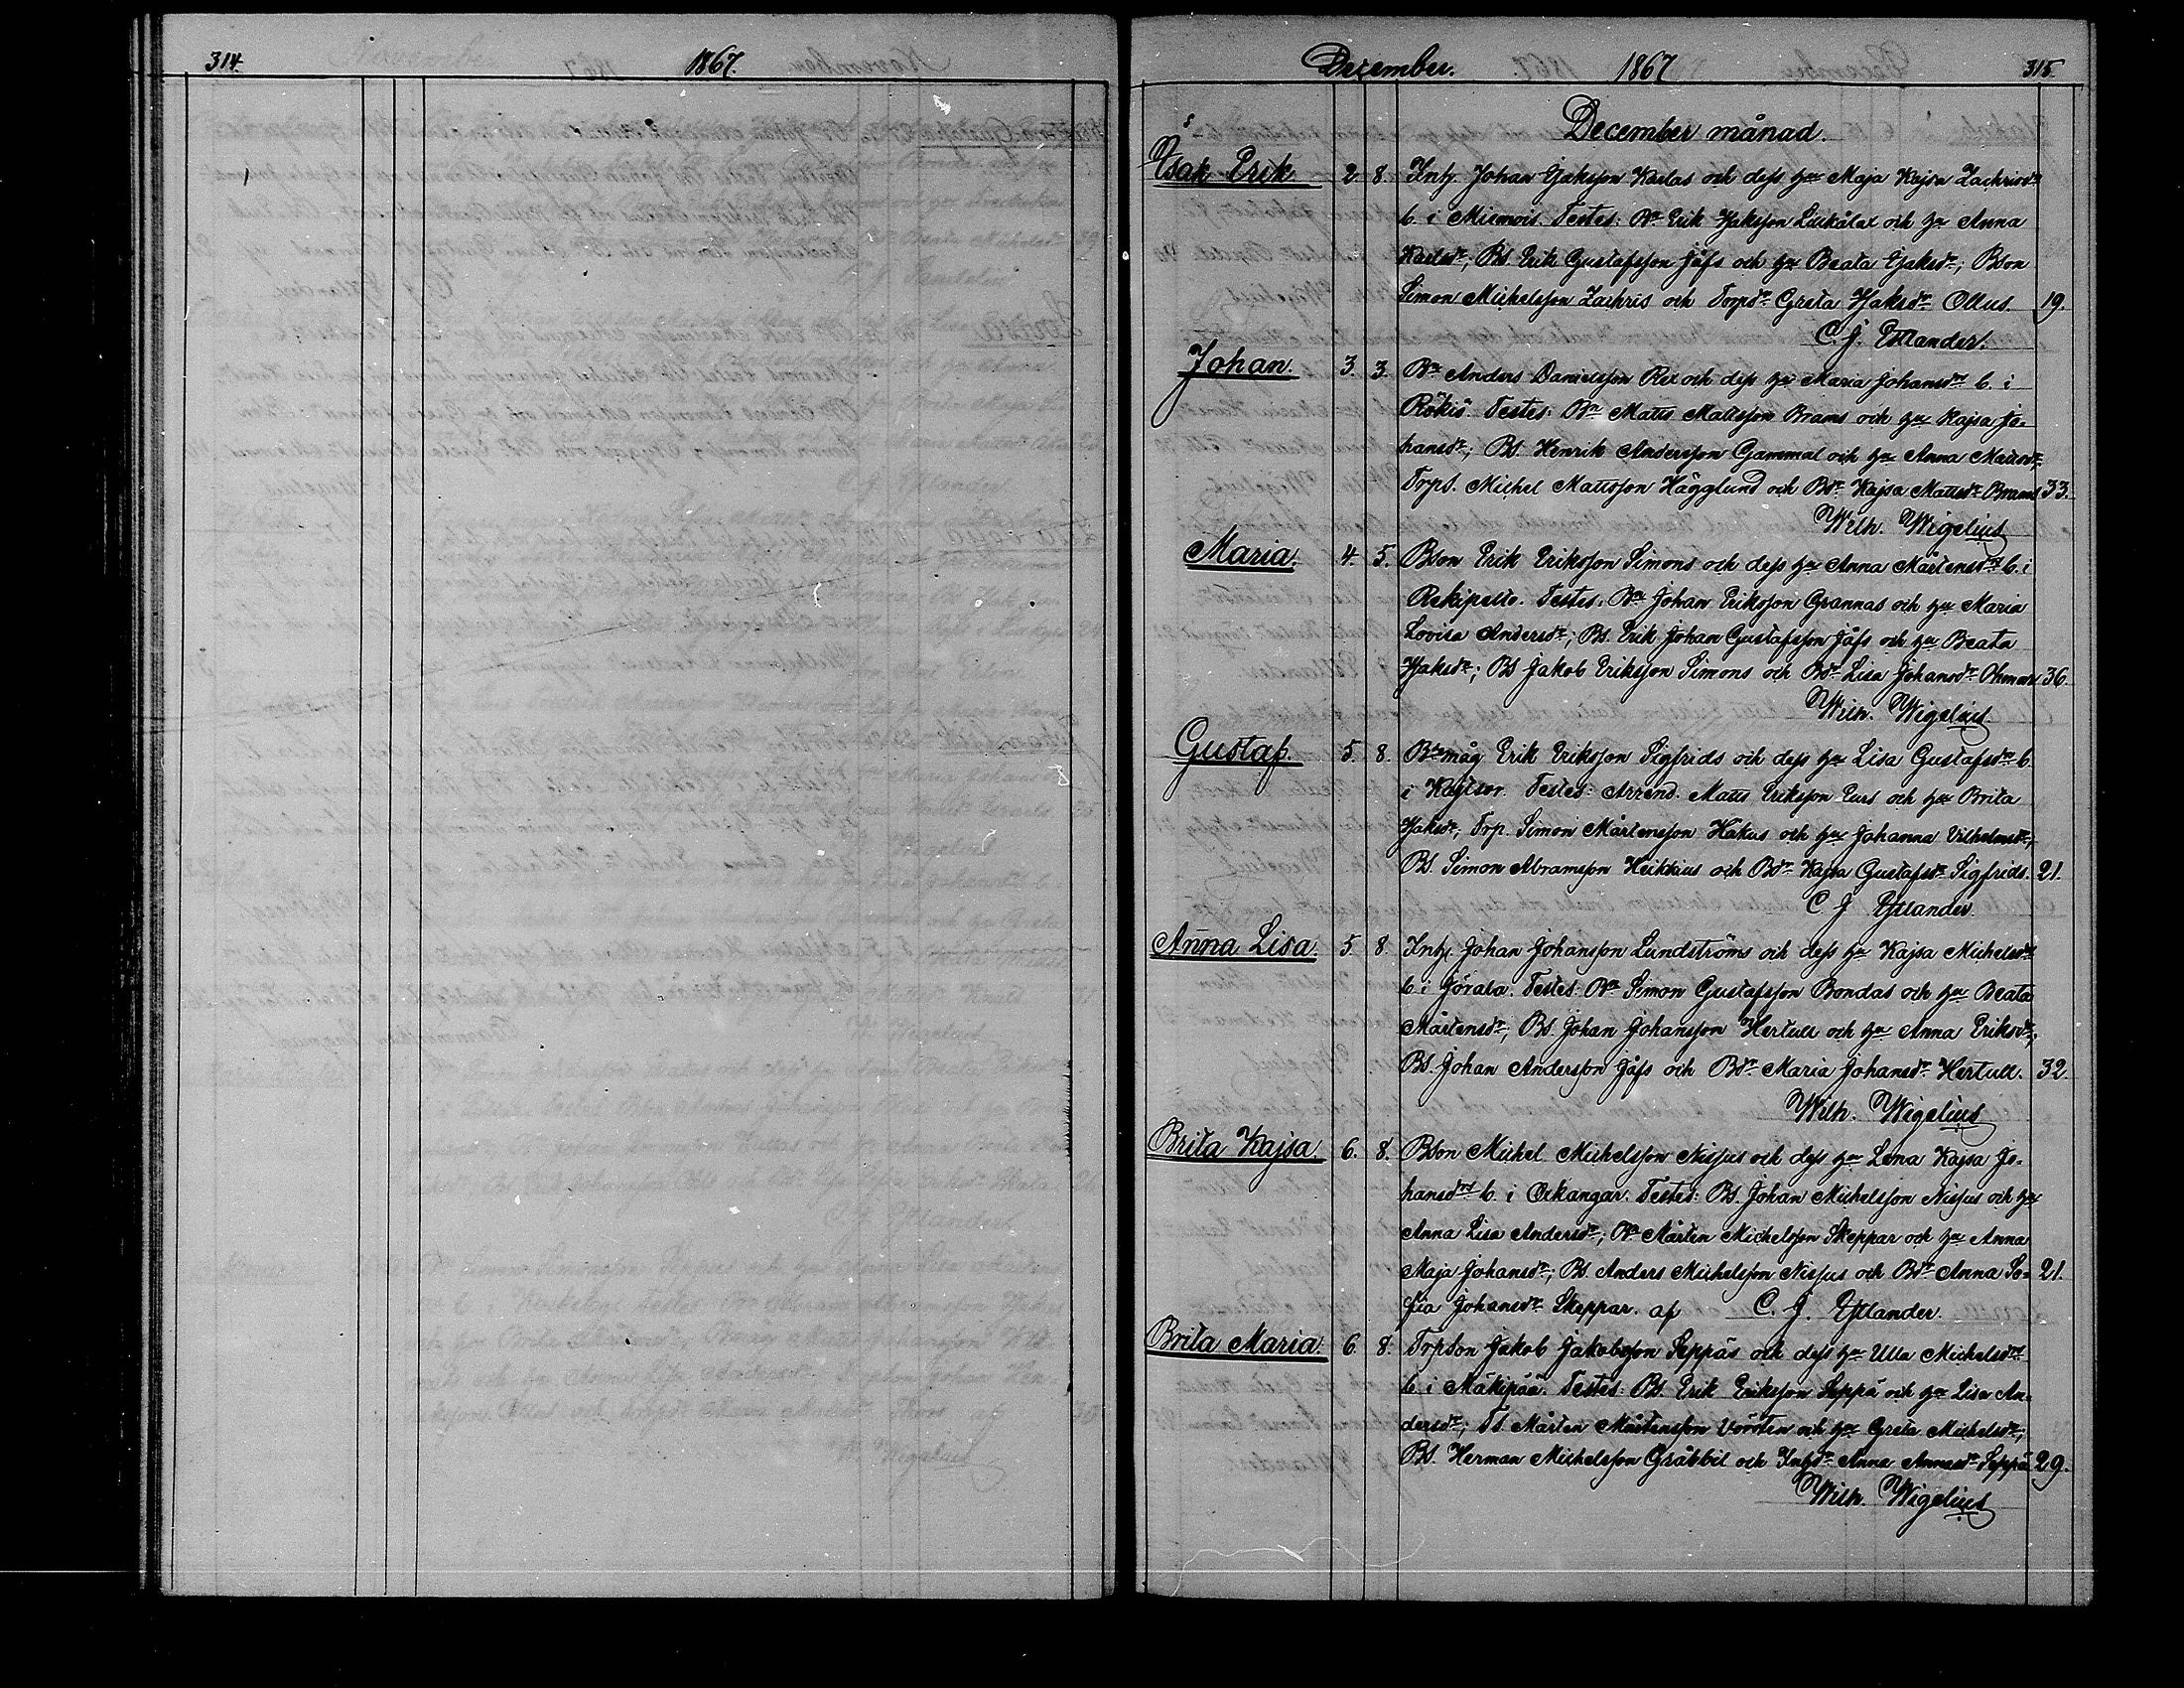 314.
1867.
December. 1867 315.
December månad.
Isak Erik 2. 8. Inh. Johan Isaksson Karlas och dess hu Maja Kajsa Zachrisdr
b. i Miemois. Testes: Bn Erik Isaksson Liukålax och hu Anna
Karlsdr; Bs. Erik Gustafsson Jåfs och hu Beata Isaksdr; Bson
Simon Michelsson Zachris och Torpdr Greta Isaksdr Ollus. 19.
C. J. Estlander.
Johan. 3. 3. Bn Anders Danielsson Rex och dess hu Maria Johansdr b. i
Rökiö. Testes: Bn Matts Mattsson Brams och hu Kajsa Jo-
hansdr; Bs. Henrik Andersson Gammal och hu Anna Mattsdr,
Torps. Michel Mattsson Hägglund och Bdr Kajsa Mattsdr Brams 33.
Wilh. Wigelius
Maria. 4. 5. Bson Erik Eriksson Simons och dess hu Anna Mårtensdr b. i
Rekipelto. Testes: Bn Johan Eriksson Grannas och hu Maria
Lovisa Andersdr; Bs. Erik Johan Gustafsson Jåfs och hu Beata
Isaksdr; Bs Jakob Eriksson Simons och Bdr Lisa Johansdr Ohmars 36.
Wilh. Wigelius.
Gustaf. 5. 8. Bnmåg Erik Eriksson Sigfrids och dess hu Lisa Gustafsdr b.
i Kaitsor. Testes: Arrend. Matts Eriksson Eurs och hu Brita
Isaksdr; Trp. Simon Mårtensson Hakus och hu Johanna Vilhelmsdr;
Bs. Simon Abramsson Heikkius och Bdr Kajsa Gustafsdr Sigfrids. 21.
C J Estlander.
Anna Lisa. 5. 8. Inh. Johan Johansson Lundströms och dess hu Kajsa Michelsdr
b. i Jörala. Testes: Bn Simon Gustafsson Bondas och hu Beata
Mårtensdr; Bs. Johan Johansson Hertull och hu Anna Eriksdr;
Bs. Johan Andersson Jåfs och Bdr Maria Johansdr Hertull. 32.
Wilh. Wigelius
Brita Kajsa. 6. 8. Bson Michel Michelsson Nissus och dess hu Lena Kajsa Jo-
hansdr b. i Oxkangar. Testes: Bs. Johan Michelsson Nissus och hu
Anna Lisa Andersdr; Bn Mårten Michelsson Skeppar och hu Anna
Maja Johansdr; Bs. Anders Michelsson Nissus och Bdr Anna So- 21.
fia Johansdr Skeppar. af C. J. Estlander.
Brita Maria. 6. 8. Trpson Jakob Jakobsson Seppäs och dess hu Ulla Michelsdr
b. i Mäkipää. Testes: Bs. Erik Eriksson Seppä och hu Lisa An-
dersdr; Ts. Mårten Mårtensson Vörsten och hu Greta Michelsdr;
Bs. Herman Michelsson Gräbbil och Inhdr Anna Annasdr Seppä 29.
Wilh. Wigelius